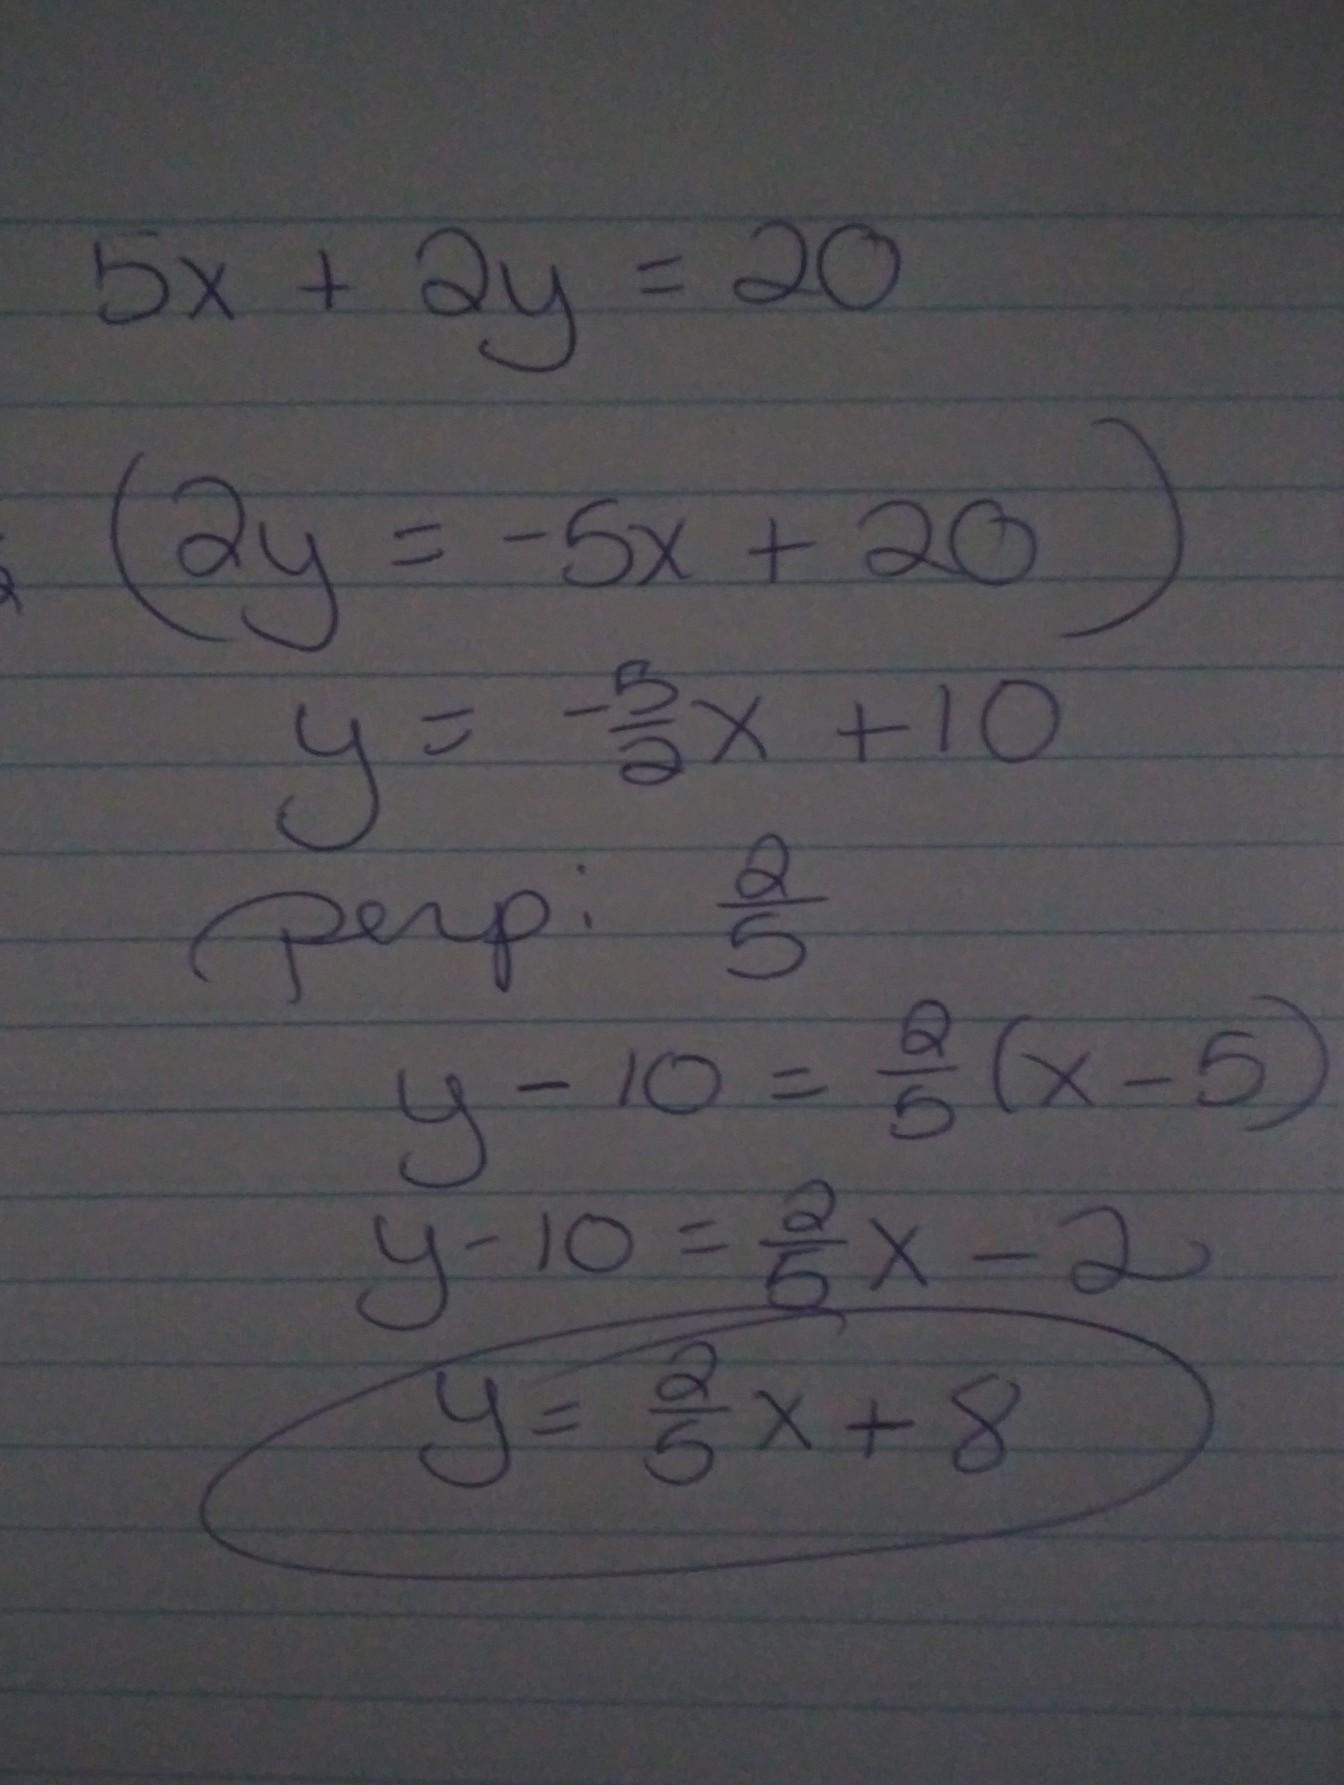 5x + 2y = 20
(2y = -5x + 20)
y = -5/2 x + 10
perp: 2/5
y - 10 = 2/5 (x - 5)
y - 10 = 2/5 x - 2
y = 2/5 x + 8